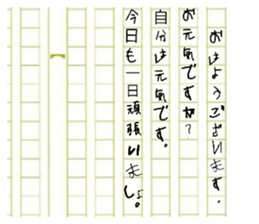 おはようございます。
お元気ですか?
自分は元気です。
今日も一日頑張いましょ。